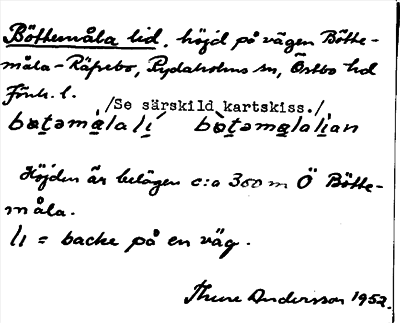 Böttemåla lid, höjd på vägen Bötte-
måla-Räfsebo, Rydaholms sn, Östbo hd
Jönk. l.
/Se särskild kartskiss./
Höjden är belägen c:a 300 m Ö Bötte-
måla.
li = backe på en väg.
Thure Andersson 1952.